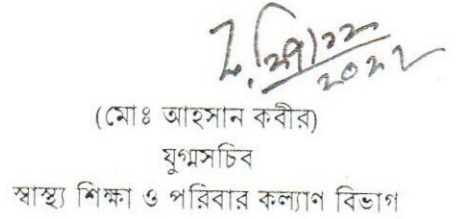 ২০২২
(মোঃ আহসান কবীর)
যুগ্মসচিব
স্বাস্থ্য শিক্ষা ও পরিবার কল্যাণ বিভাগ